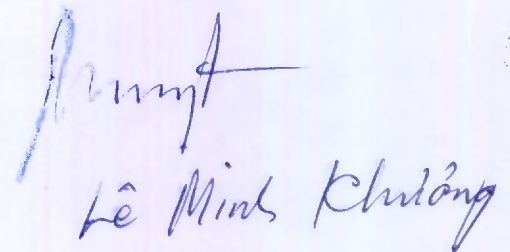 Lê Minh Khưởng